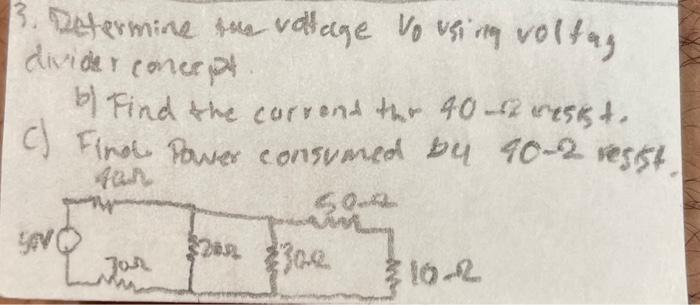 3. Determine the voltage Vo using voltag
divider concept.
b) Find the current thr 40-Ω resist.
c) Find Power consumed by 40-Ω resist.
40Ω
50-Ω
50V
20Ω
30Ω
10-Ω
70Ω